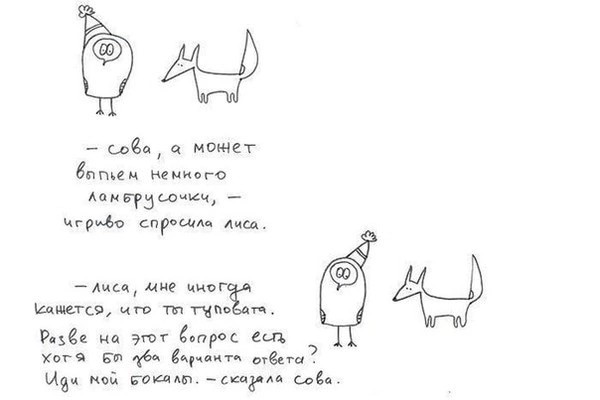 – сова, а может
выпьем немного
ламбрусочки, –
игриво спросила лиса.
– лиса, мне иногда
кажется, что ты туповата.
Разве на этот вопрос есть
хотя бы два варианта ответа?
Иди мой бокалы. – сказала сова.